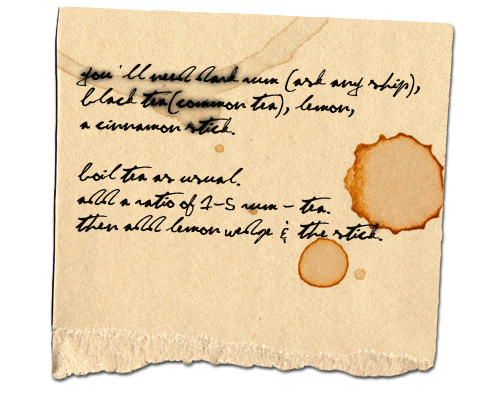 you'll need dark rum (ask any ship),
black tea (common tea), lemon,
a cinnamon stick.
boil tea as usual.
add a ratio of 1-5 rum - tea.
then add lemon wedge & the stick.